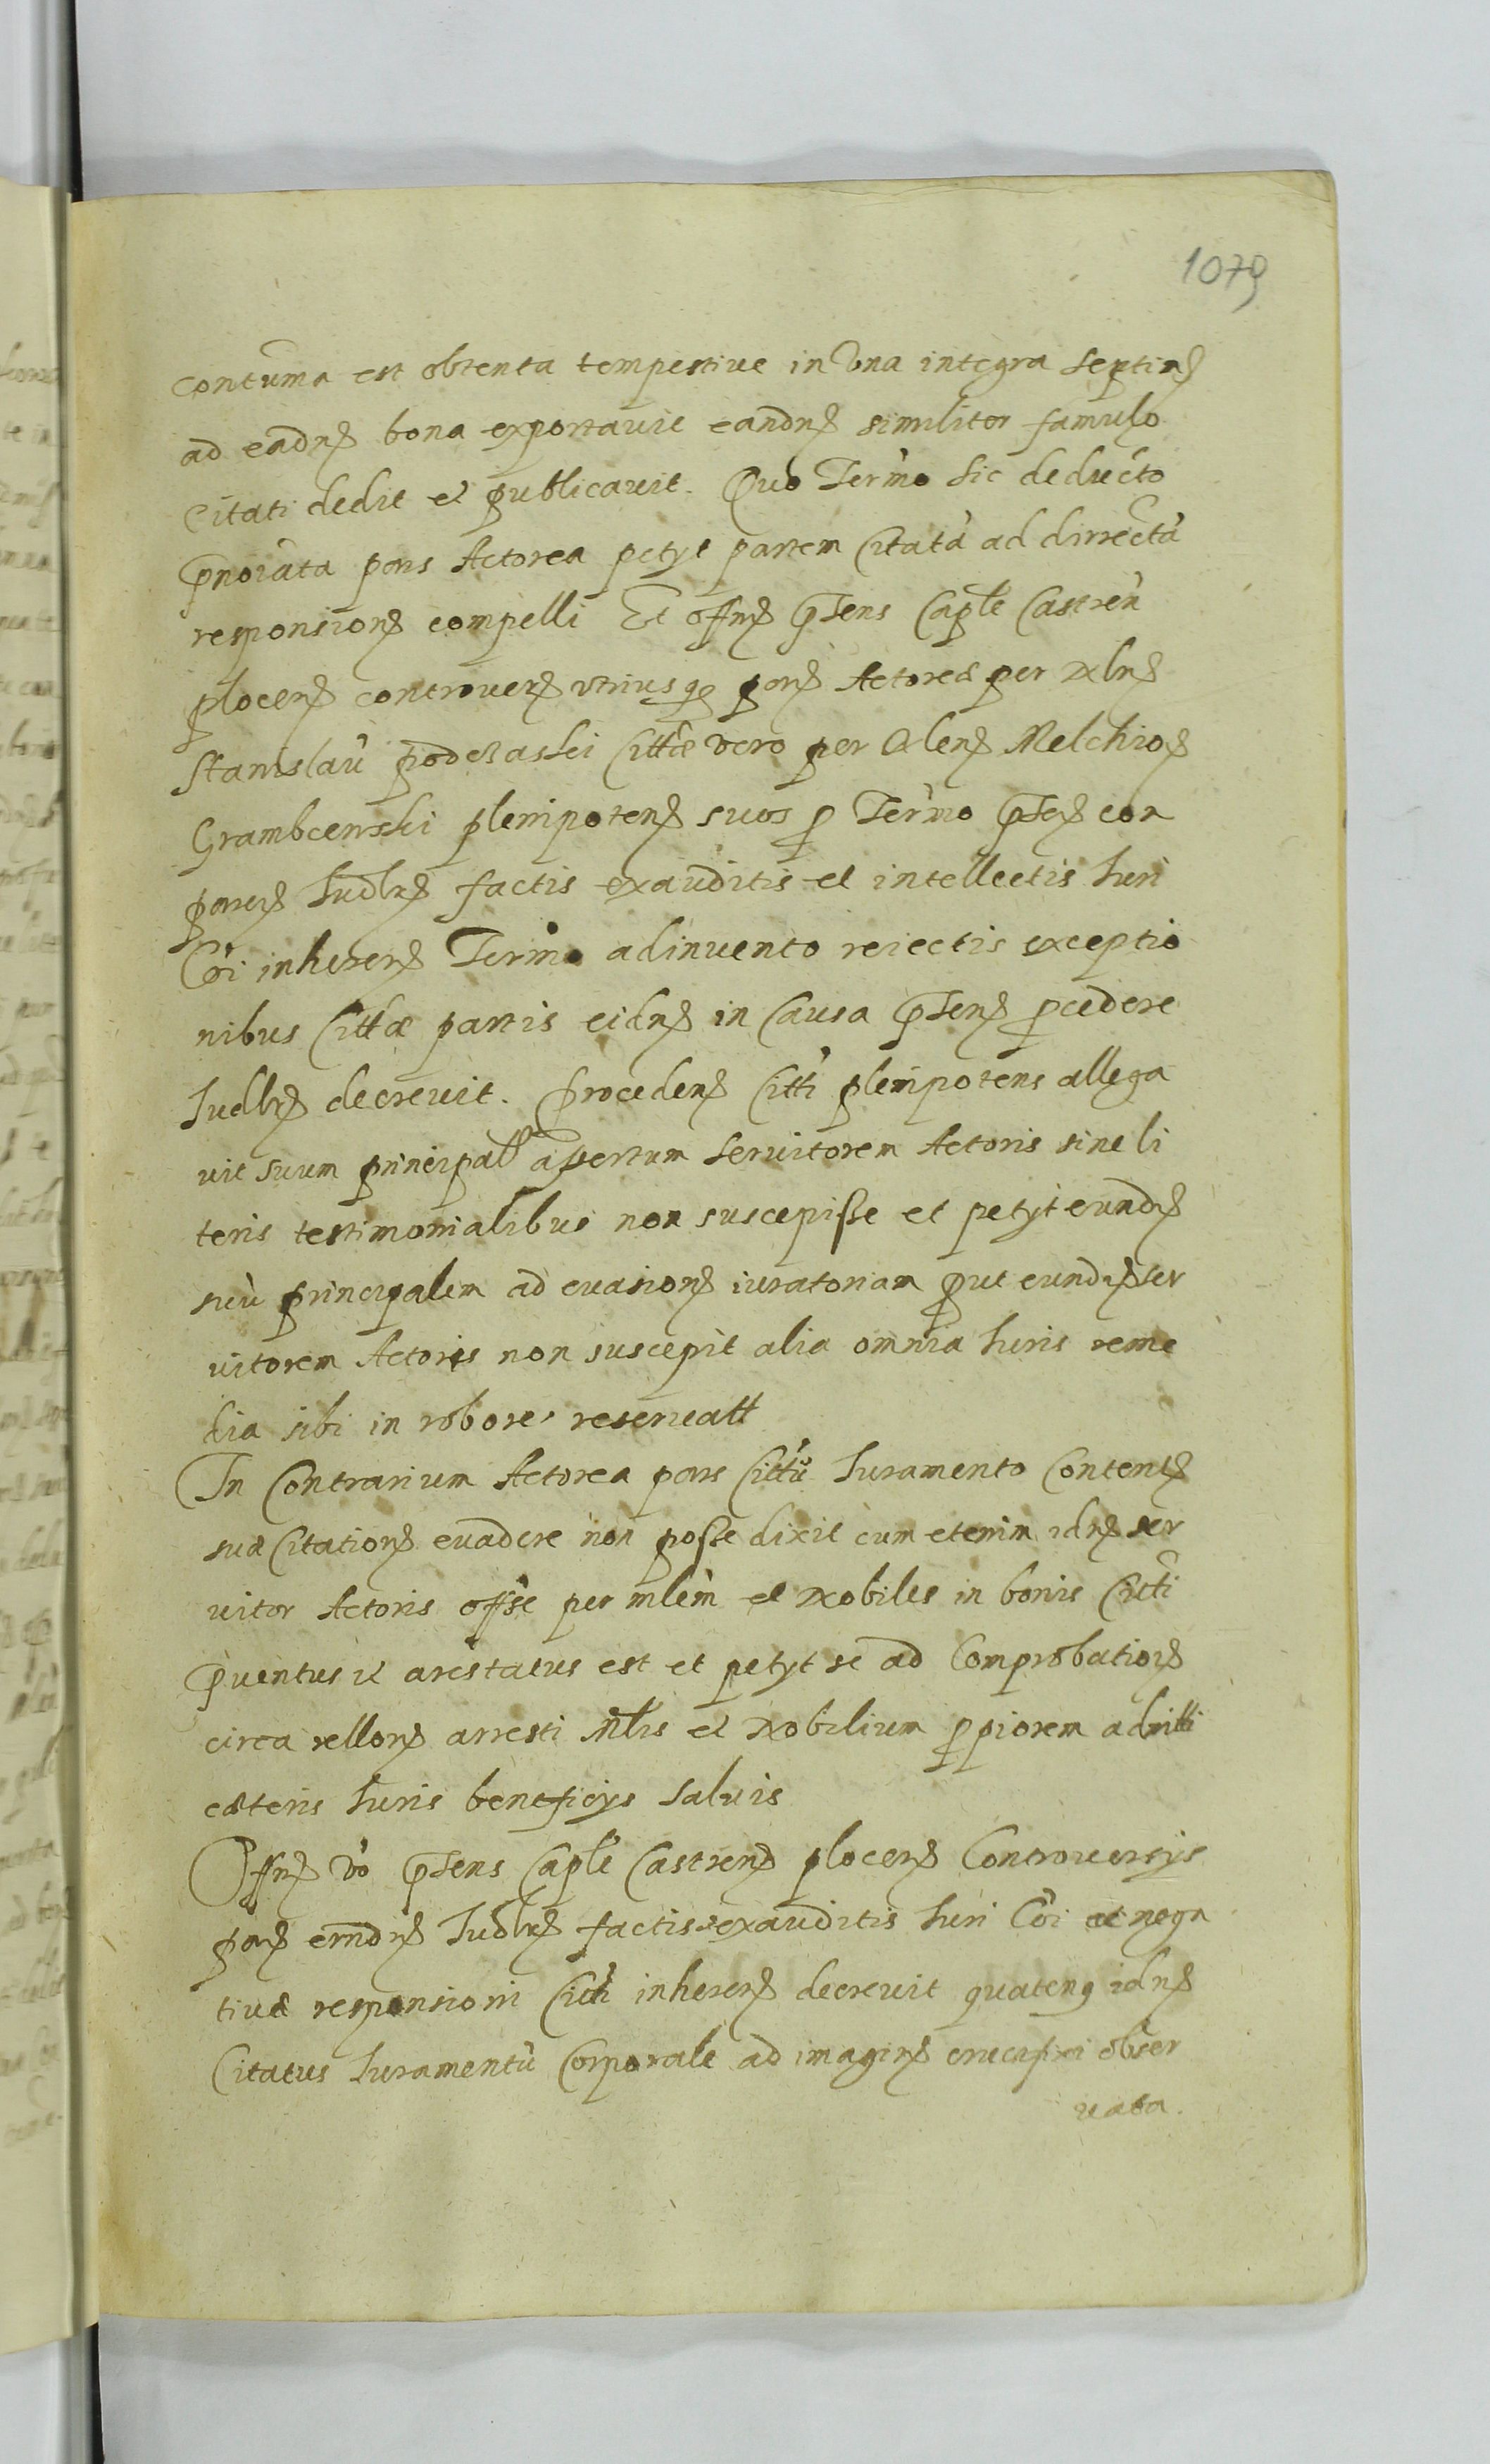 1079
contuma est obtenta tempestive in una integra septinꝭ
ad eadnꝭ bona exportavit eandnꝭ similiter famulo
Citati dedit et publicavit. Quo Termo sic deducto
pnoiata pars Actorea petyt partem Citatã ad dirrectã
responsionꝭ compelli Et offnꝭ pñsens Caple Castreñ
plocenꝭ controverꝭ utriusqꝫ parꝭ Actoreæ per Nblnꝭ
Stanislaũ podczaski Cittæ vero per Nblenꝭ Melchioꝭ
Grambcewski plenipotenꝭ suos ꝓ Termo pñsenꝭ cora
parenꝭ Iudlrꝭ factis exauditis et intellectis Iuri
Cõi inherenꝭ Termo adinvento reiectis exceptio
nibus Cittæ partis eidnꝭ in Causa pñsenꝭ ꝓcedere
Iudlrꝭ decrevit. Procedenꝭ Citti plenipotens allega
vit suum principal assertum servitorem Actoris sine li
teris testimonialibus non suscepisse et petyt eundꝭ
suũ principalem ad evasionꝭ iuratoriam ꝓut eundꝭ ser
vitorem Actoris non suscepit alia omnia Iuris reme
dia sibi in robore reservatt
In Contrarium Actorea pars Cittũ Iuramento Contentꝭ
suæ Citationꝭ evadere non posse dixit cum etenim idnꝭ ser
vitor Actoris offse per mlem et Nobiles in bonis Citti
ꝓventus et arestatus est et petyt se ad Comprobationꝭ
circa rellonꝭ arresti Mlis et Nobilium ꝓpiorem admitti
cæteris Iuris beneficys salvis
Offnꝭ vo pñsens Caple Castrenꝭ plocenꝭ Controversys
parꝭ earndnꝭ Iudlrꝭ factis exauditis Iuri Cõi et nega
tivæ responsioni Citti inherenꝭ decrevit quatenꝰ idnꝭ
Citatus Iuramentũ Corporale ad imaginꝭ crucifixi obser
vata.